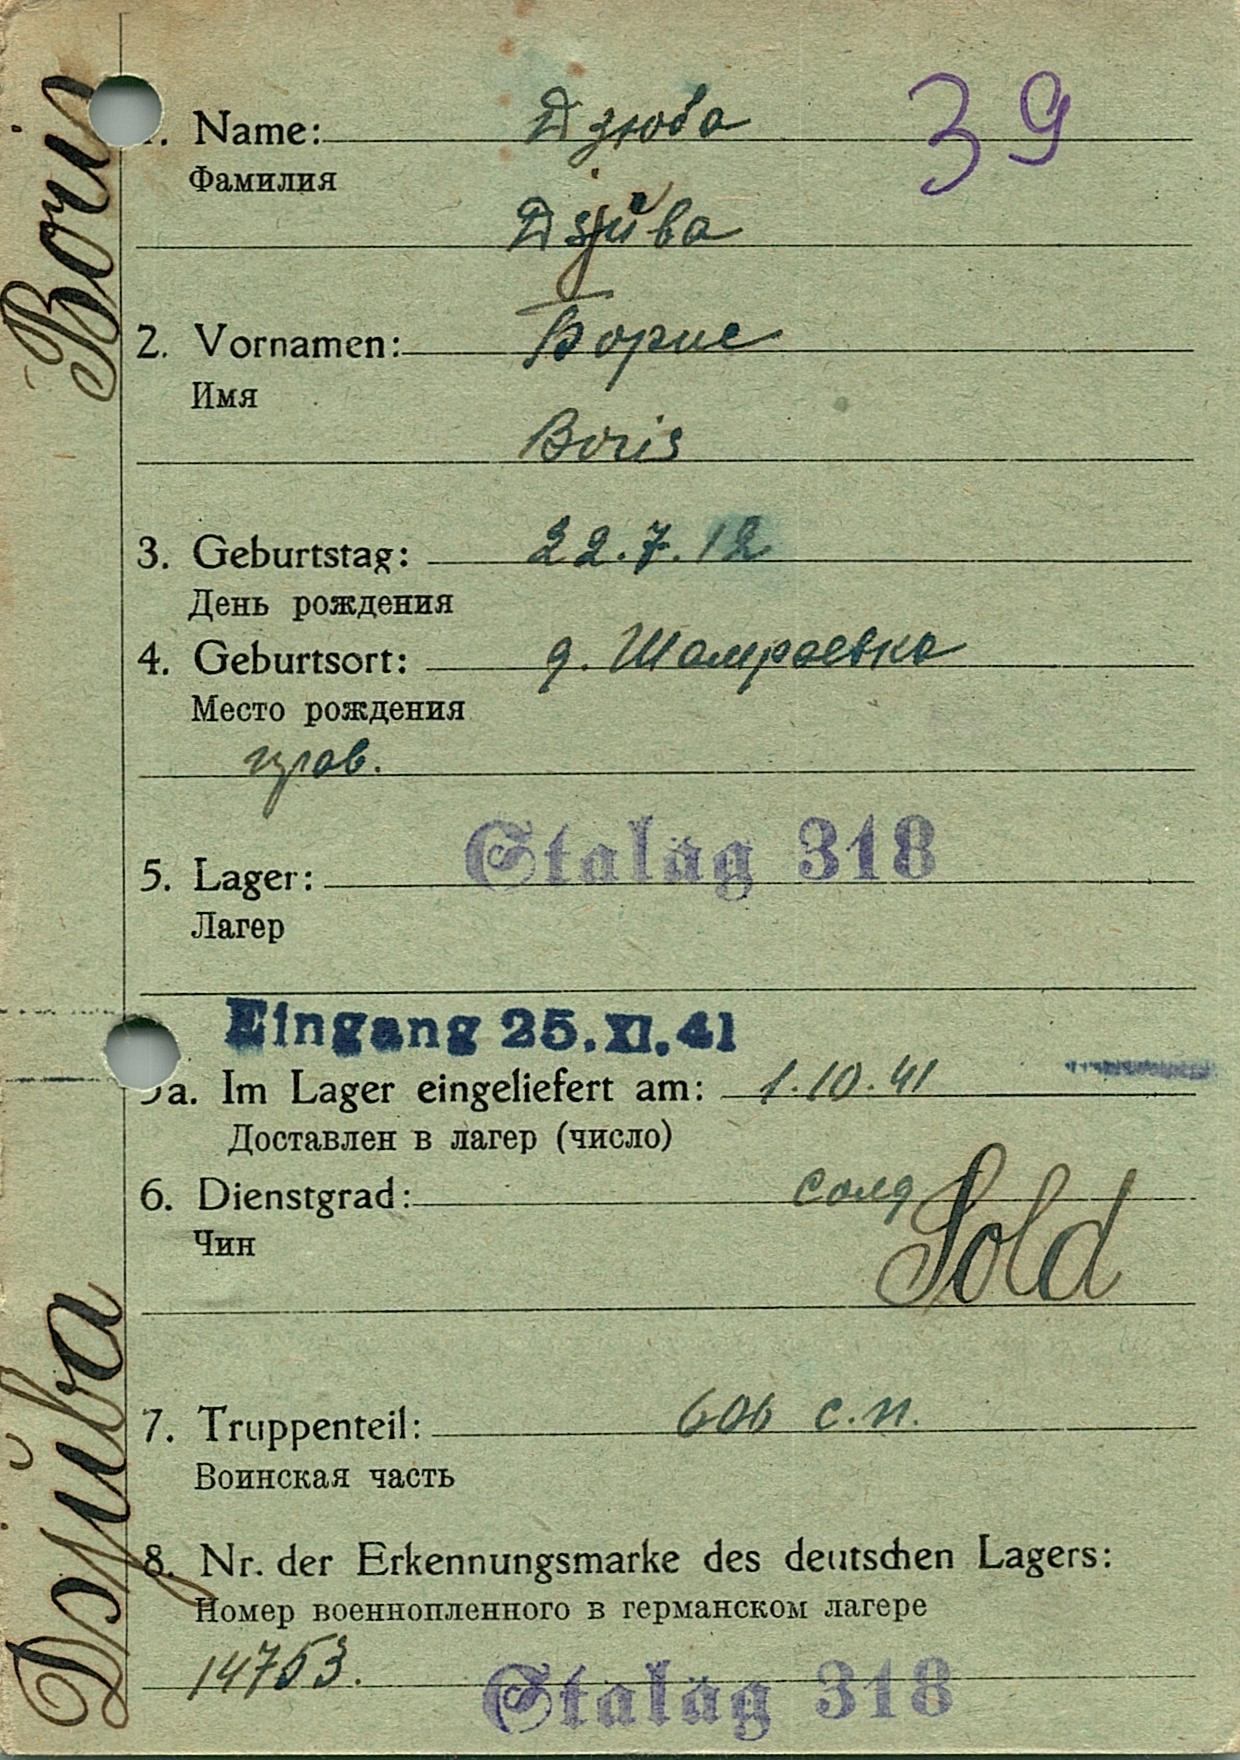 Boris
Dsjuba
39
1. Name: Дзюба
Фамилия
Dsjŭba
2. Vornamen: Борис
Имя
Boris
3. Geburtstag: 22.7.12
День рождения
4. Geburtsort: д. Шамраевка
Место рождения
5. Lager: Stalag 318
Лагер
Eingang 25.XI.41
5a. Im Lager eingeliefert am: 1.10.41
Доставлен в лагер (число)
6. Dienstgrad: солд
Чин
Sold
7. Truppenteil: 606 с.п.
Воинская часть
8. Nr. der Erkennungsmarke des deutschen Lagers:
Номер военнопленного в германском лагере
14753. Stalag 318